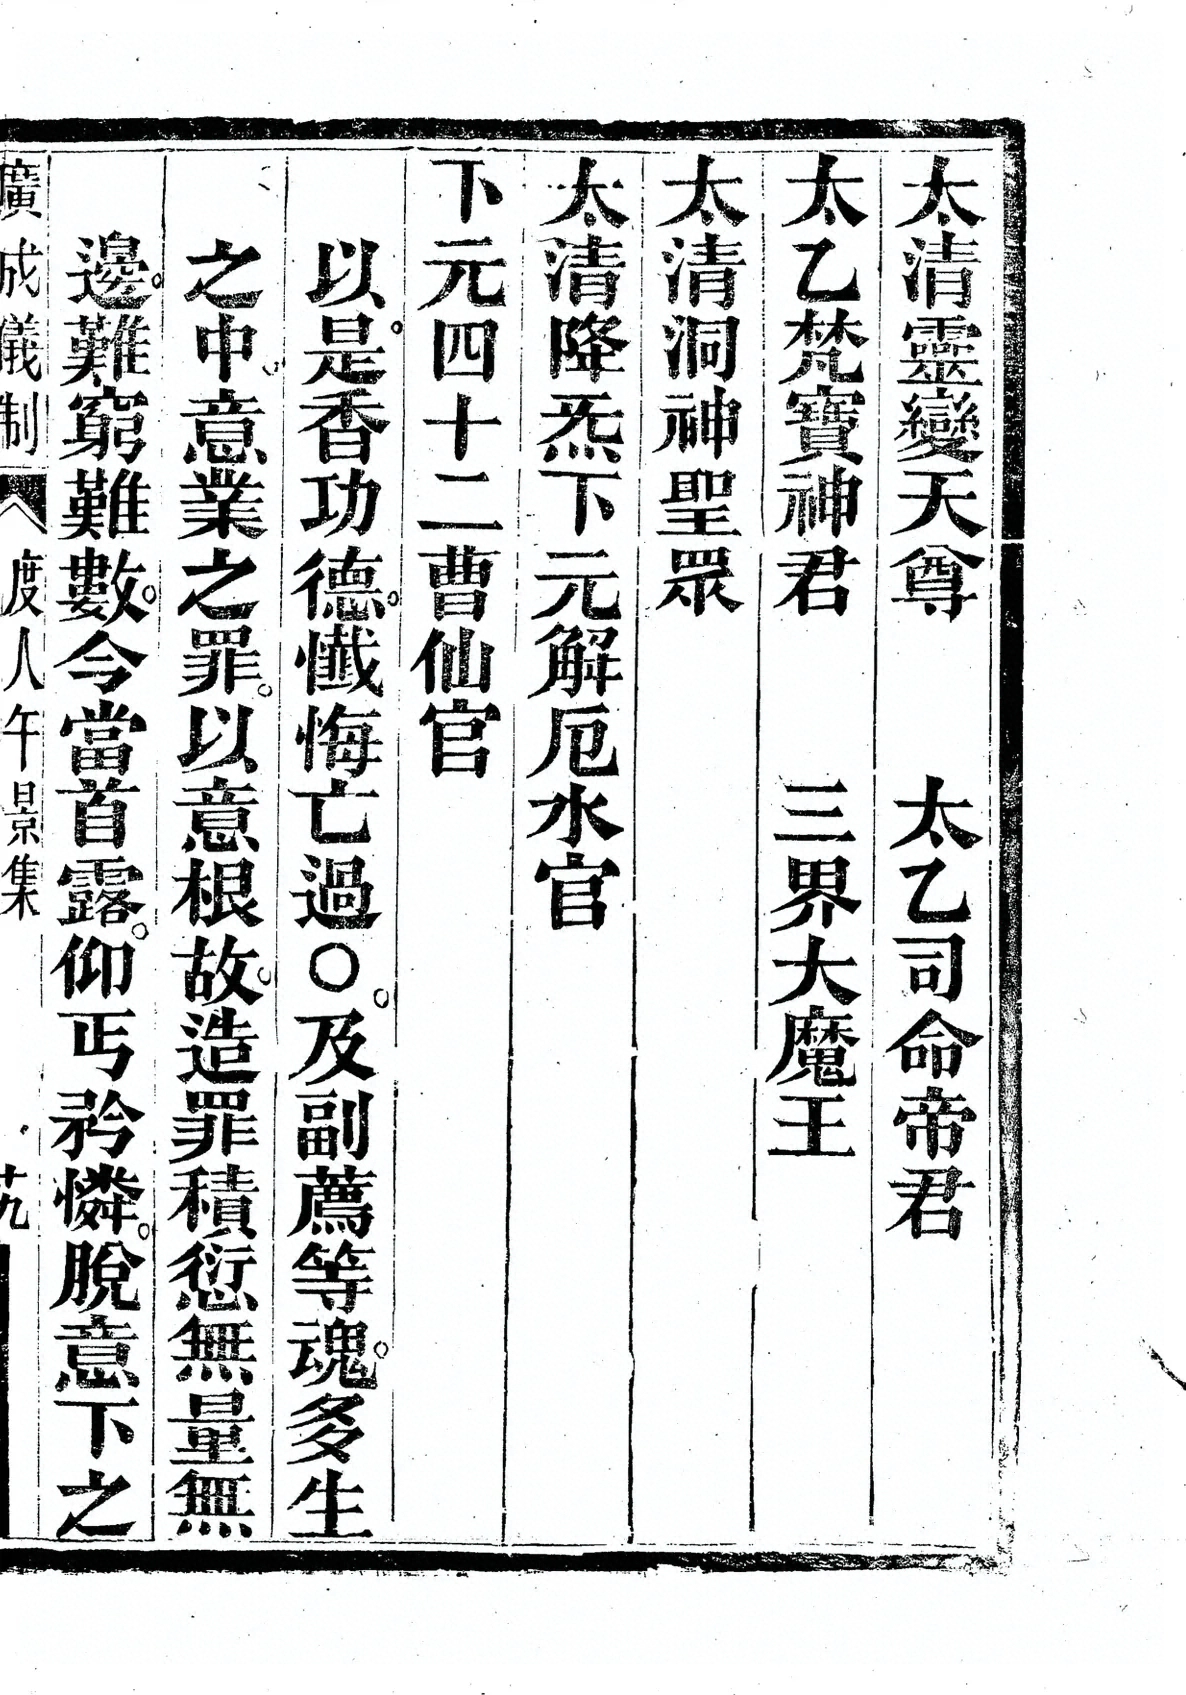 太清靈變天尊　　太乙司命帝君
太乙梵寶神君　　三界大魔王
太清洞神聖眾
太清降炁下元解厄水官
下元四十二曹仙官
以是香功德。懺悔亡過○。及副薦等魂。多生
之中。意業之罪。以意根故。造罪積愆無量無
邊。難窮難數。今當首露。仰丐矜憐。脫意下之
廣成儀制　度人午景集　十九